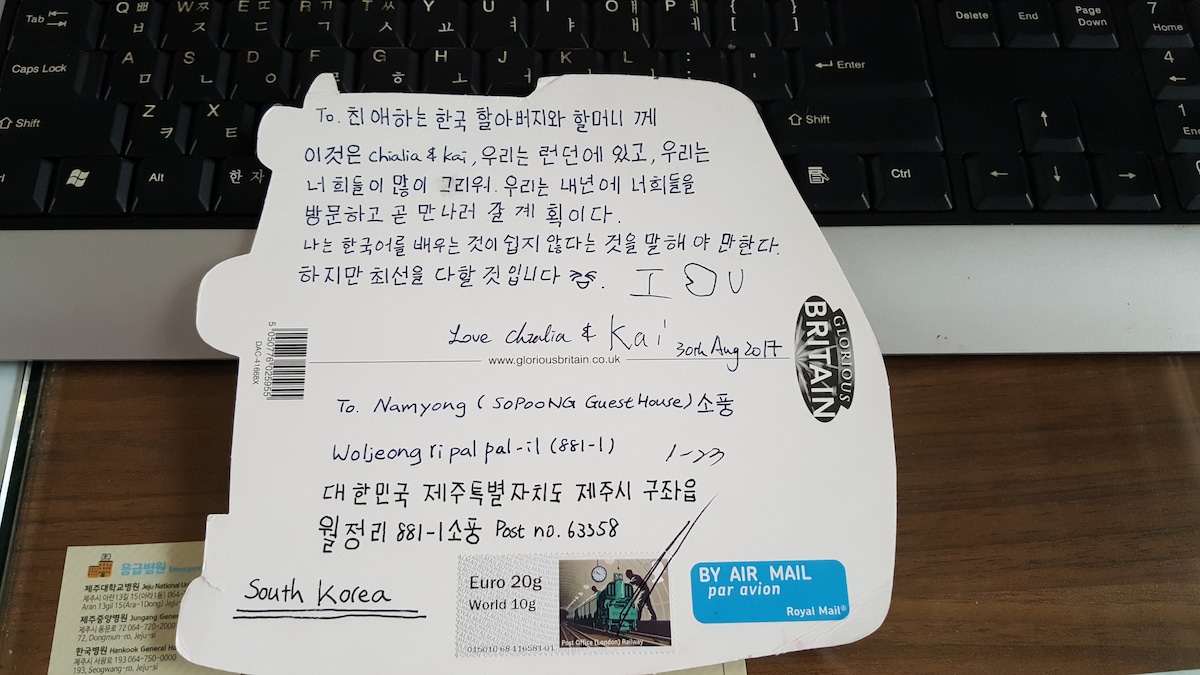 Tab
Q ㅃ ㅂ
W ㅉ ㅈ
E ㄸ ㄷ
R
T
Y ㅛ
U ㅕ
I ㅑ
O ㅒ ㅐ
P ㅖ ㅔ
{ [
} ]
Delete
End
Page Down
7 Home
Caps Lock
A ㅁ
S ㄴ
D ㅇ
F
G ㅎ
H ㅗ
J
Enter
4
Shift
Z ㅋ
X ㅌ
Shift
1 End
Alt
한자
Ctrl
To. 친애하는 한국 할아버지와 할머니 께
이것은 chialia & kai, 우리는 런던에 있고, 우리는
너희들이 많이 그리워. 우리는 내년에 너희들을
방문하고 곧 만나러 갈 계획이다.
나는 한국어를 배우는 것이 쉽지 않다는 것을 말해야 만한다.
하지만 최선을 다할 것입니다. I U
Love chialia & Kai 30th Aug 2017
www.gloriousbritain.co.uk
GLORIOUS BRITAIN
5 050776 025955
DAC-41668X
To. Namyong (SOPOONG Guest House) 소풍
Woljeong ri pal pal-il (881-1)
1-23
대한민국 제주특별자치도 제주시 구좌읍
월정리 881-1 소풍 Post no. 63358
South Korea
Euro 20g
World 10g
Post Office (London) Railway
BY AIR MAIL
par avion
Royal Mail®
응급병원
제주대학교병원 Jeju National
제주시 아란13길 15(아라1동) 064-
Aran 13gil 15(Ara-1Dong) Jeju-
제주중앙병원 Jungang General
제주시 동문로 72 064-720-2000
72, Dongmun-ro, Jeju-si
한국병원 Hankook General
제주시 서광로 193 064-750-0000
193, Seogwang-ro, Jeju-si